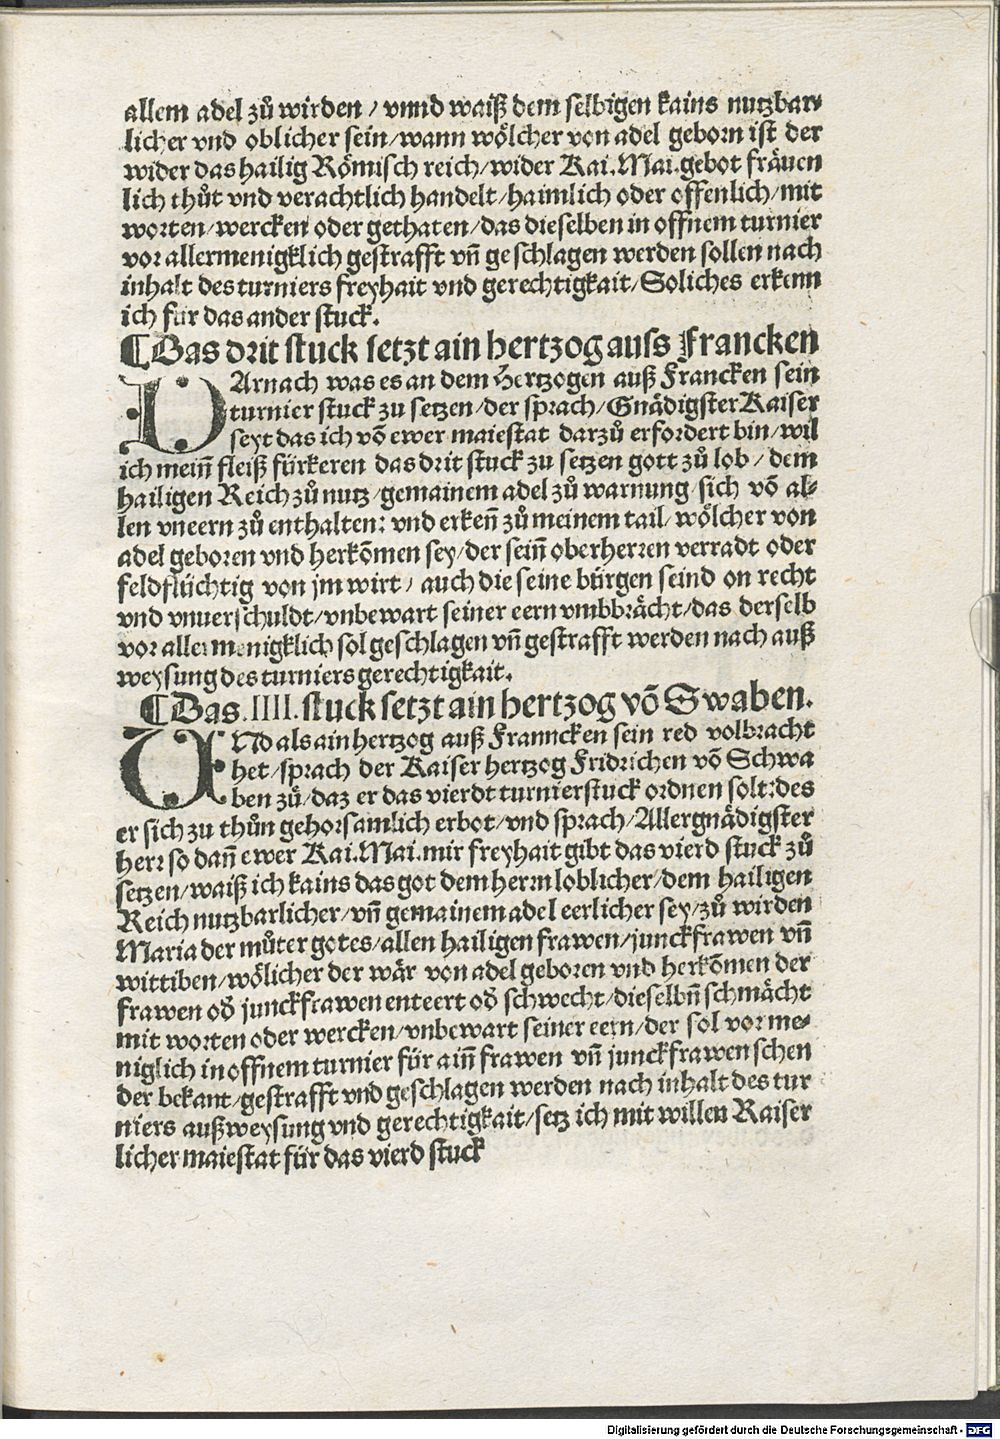 allem adel zů wirden / vnnd waiß dem selbigen kains nutzbar⸗
licher vnd oblicher sein / wann wölcher von adel geborn ist der
wider das hailig Römisch reich / wider Kai. Mai. gebot fräuen
lich thůt vnd verachtlich handelt / haimlich oder offenlich / mit
worten / wercken oder gethaten / das dieselben in offnem turnier
vor allermenigklich gestrafft vñ geschlagen werden sollen nach
inhalt des turniers freyhait vnd gerechtigkait / Soliches erkenn
ich für das ander stuck.
¶ Das drit stuck setzt ain hertzog auss Francken
DArnach was es an dem Hertzogen auß Francken sein
turnier stuck zu setzen / der sprach / Gnädigster Kaiser
seyt das ich võ ewer maiestat darzů erfordert bin / wil
ich meiñ fleiß fürkeren das drit stuck zu setzen gott zů lob / dem
hailigen Reich zů nutz / gemainem adel zů warnung sich võ al⸗
len vneern zů enthalten: vnd erkeñ zů meinem tail / wölcher von
adel geboren vnd herkõmen sey / der seiñ oberherren verradt oder
feldflüchtig von jm wirt / auch die seine bürgen seind on recht
vnd vnuerschuldt / vnbewart seiner eern vmbbrächt / das derselb
vor allermenigklich sol geschlagen vñ gestrafft werden nach auß
weysung des turniers gerechtigkait.
¶ Das .IIII. stuck setzt ain hertzog võ Swaben.
VNd als ain hertzog auß Franncken sein red volbracht
het / sprach der Kaiser hertzog Fridrichen võ Schwa
ben zů / daz er das vierdt turnierstuck ordnen solt: des
er sich zu thůn gehorsamlich erbot / vnd sprach / Allergnädigster
herr so dañ ewer Kai. Mai. mir freyhait gibt das vierd stuck zů
setzen / waiß ich kains das got dem herrn loblicher / dem hailigen
Reich nutzbarlicher / vñ gemainem adel eerlicher sey / zů wirden
Maria der můter gotes / allen hailigen frawen / junckfrawen vñ
wittiben / wölicher der wär von adel geboren vnd herkõmen der
frawen oď junckfrawen enteert oď schwecht / dieselbñ schmächt
mit worten oder wercken / vnbewart seiner eern / der sol vor me⸗
niglich in offnem turnier für aiñ frawen vñ junckfrawen schen
der bekant / gestrafft vnd geschlagen werden nach inhalt des tur
niers außweysung vnd gerechtigkait / setz ich mit willen Kaiser
licher maiestat für das vierd stuck
Digitalisierung gefördert durch die Deutsche Forschungsgemeinschaft - DFG